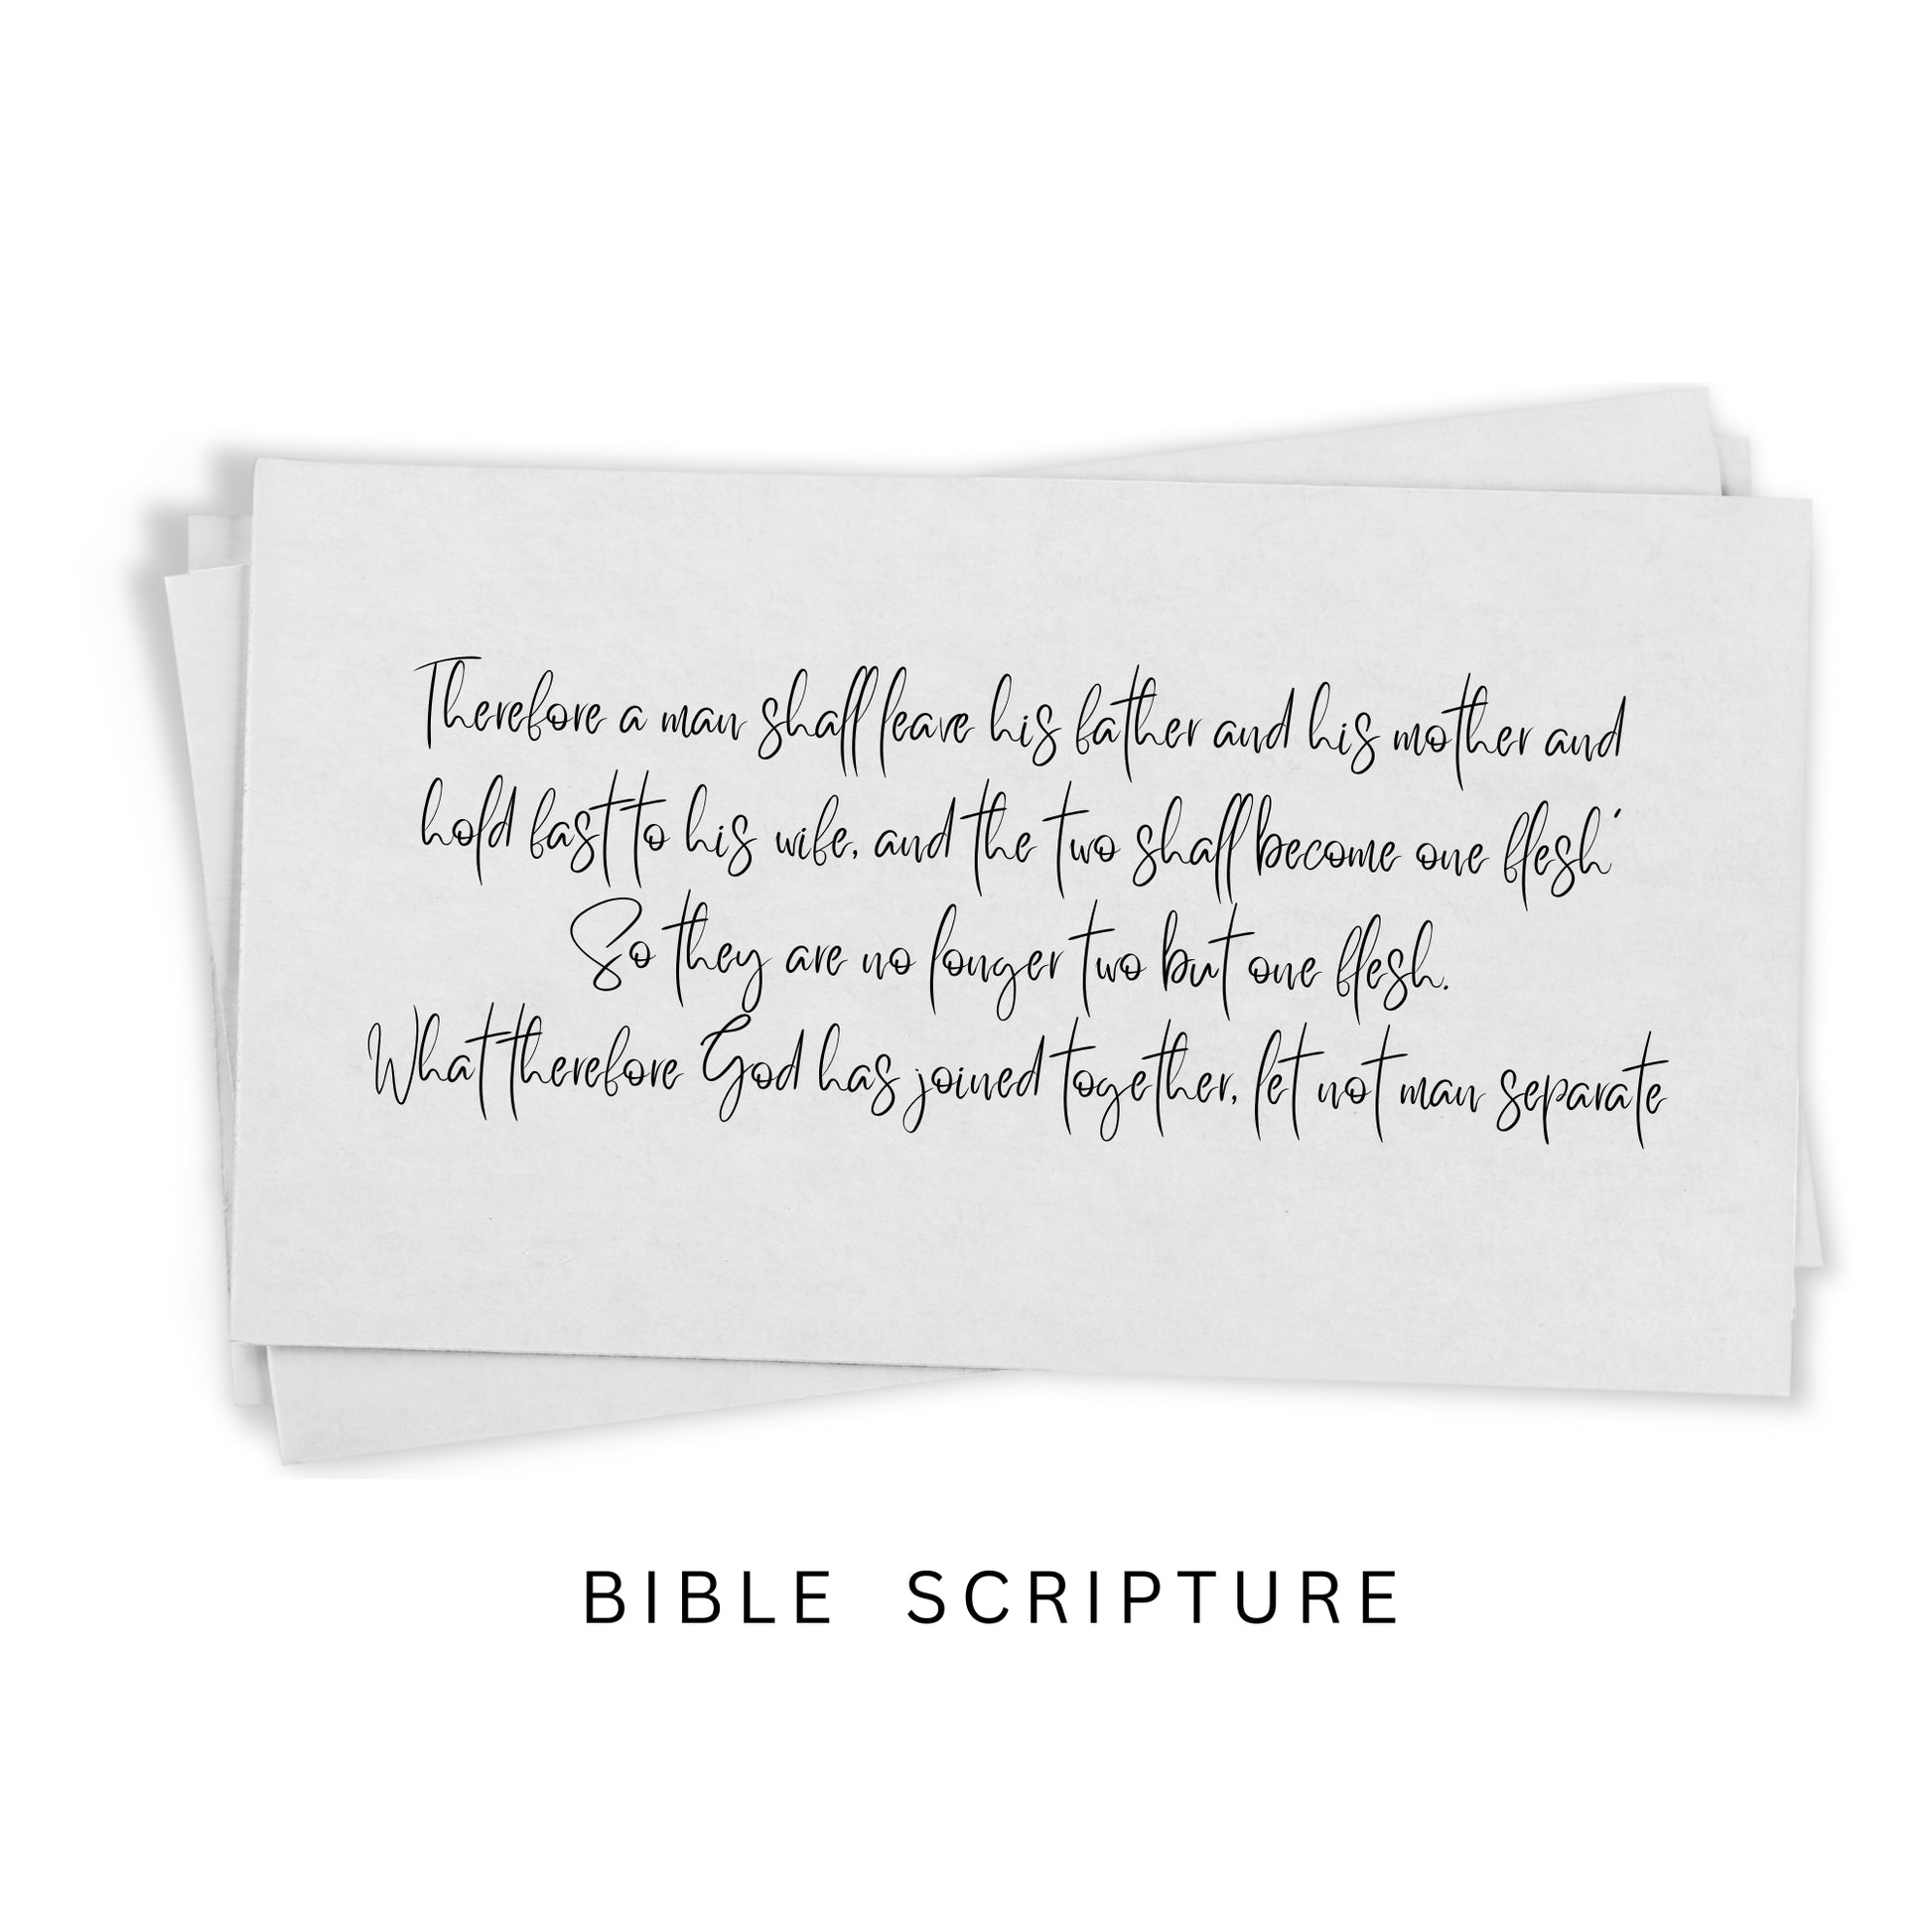 Therefore a man shall leave his father and his mother and
hold fast to his wife, and the two shall become one flesh'
So they are no longer two but one flesh.
What therefore God has joined together, let not man separate
BIBLE SCRIPTURE